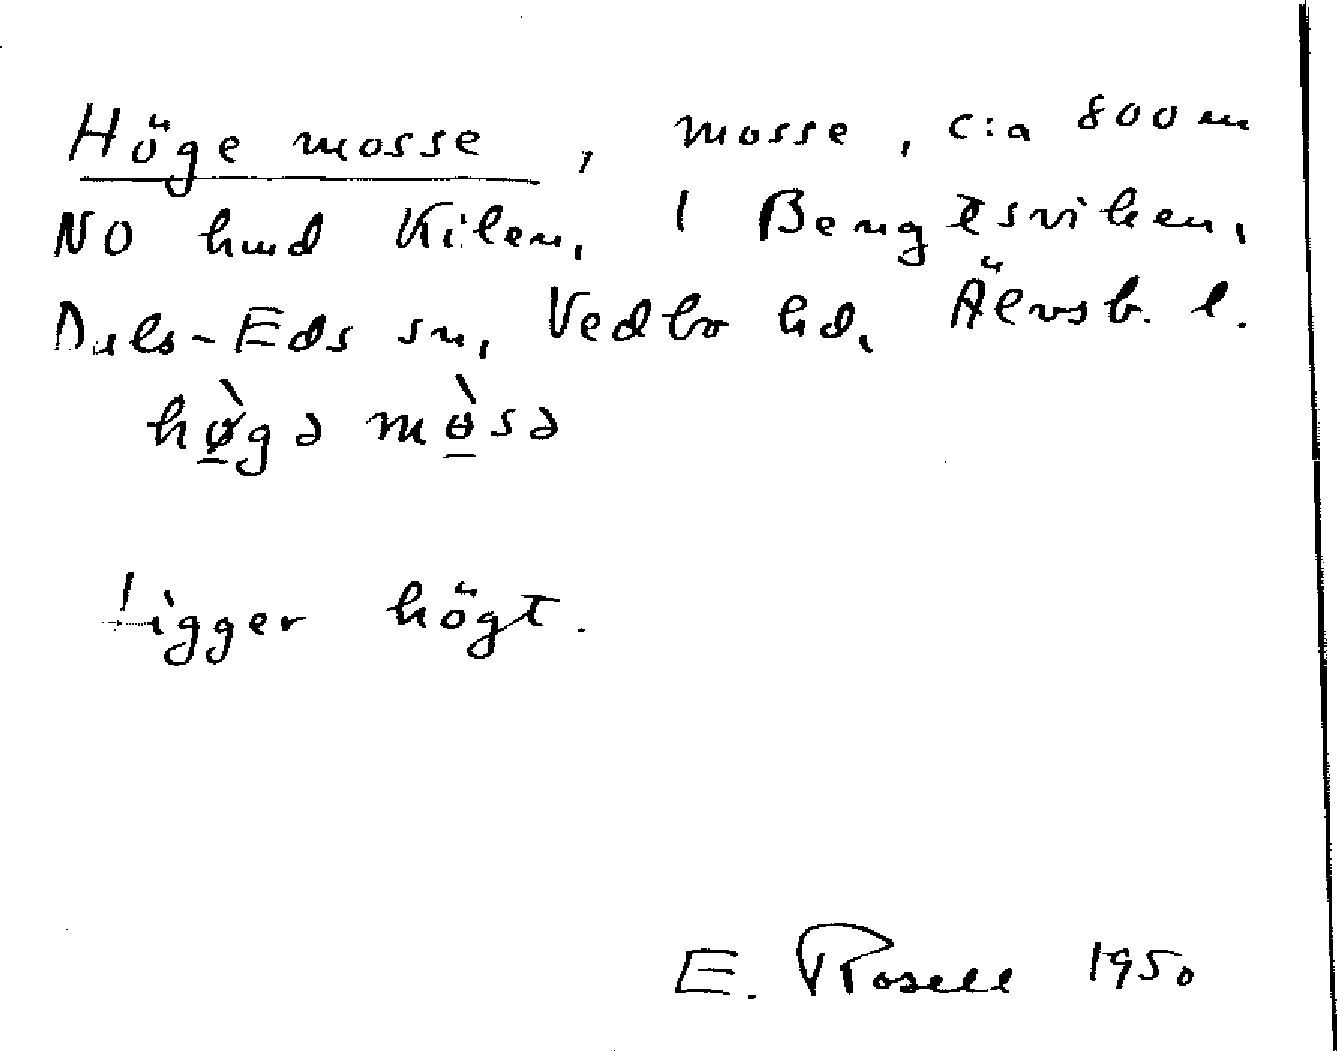 Höge mosse, mosse, c:a 800 m
NO hmd Kilen, 1 Bengtsviken,
Dals-Eds sn, Vedbo hd, Älvsb. l.
hø̀gə mɵ̀sə
Ligger högt.
E. Rosell 1950